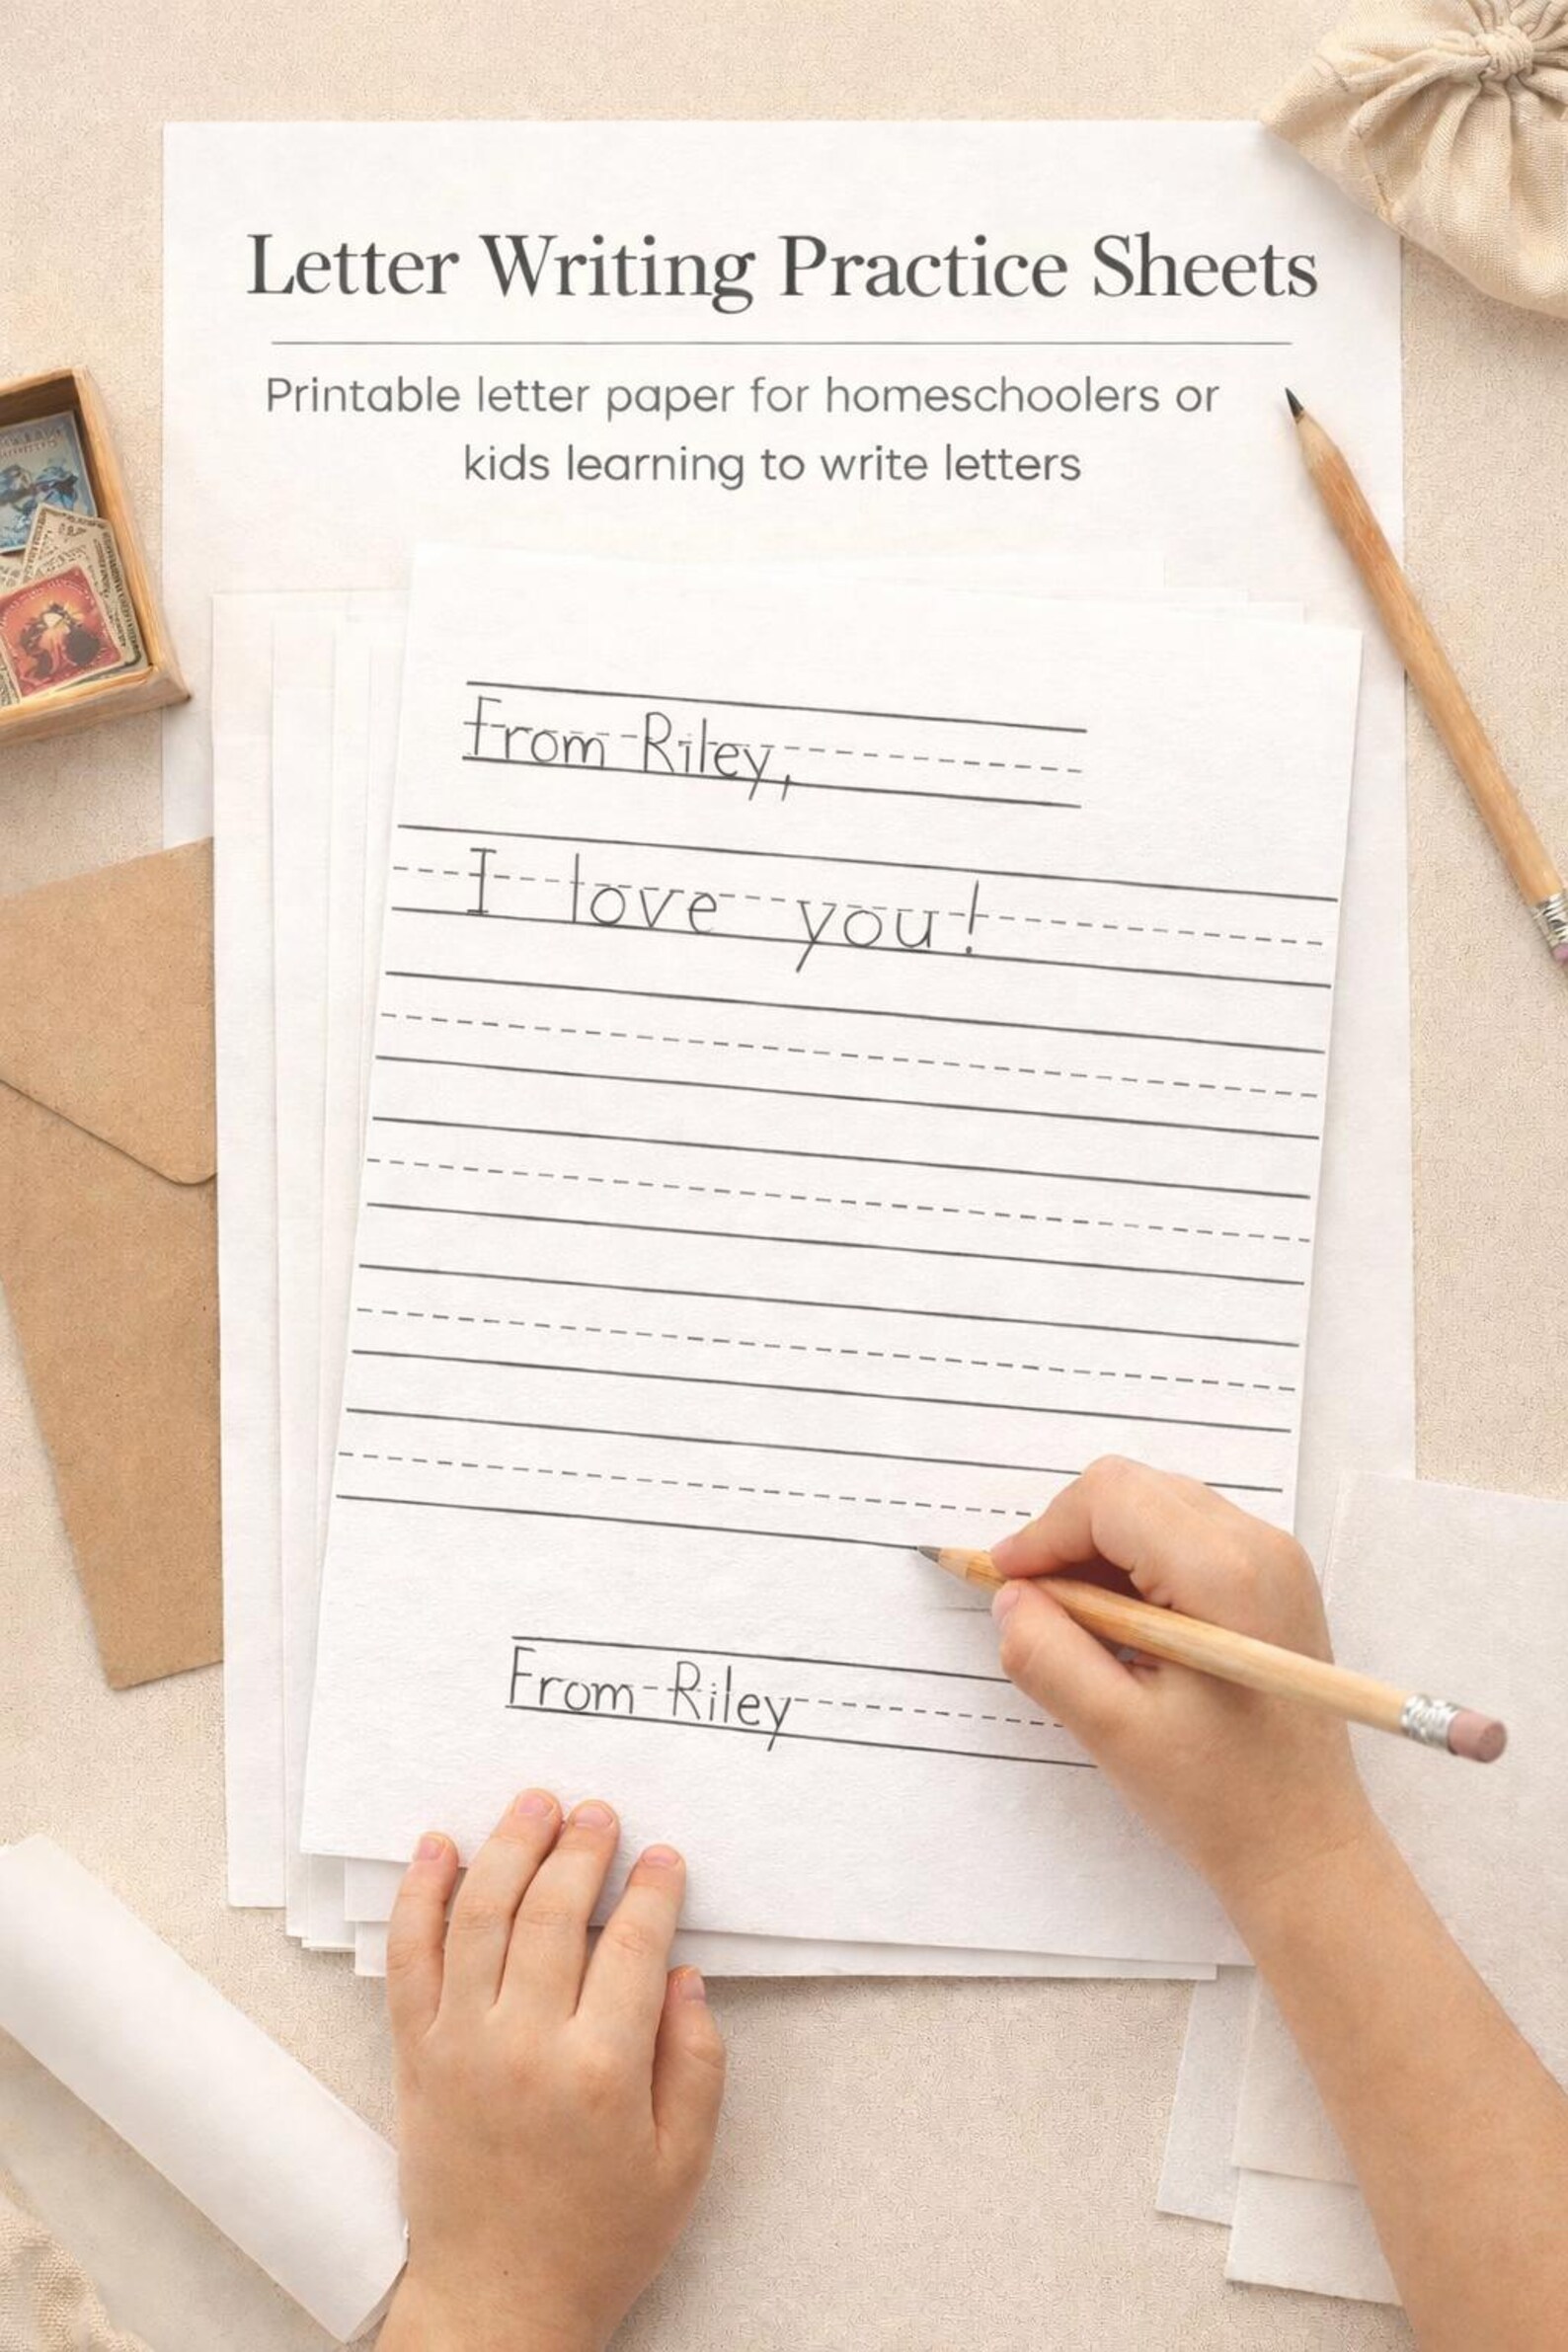 Letter Writing Practice Sheets
Printable letter paper for homeschoolers or
kids learning to write letters
From Riley,
I love you!
From Riley